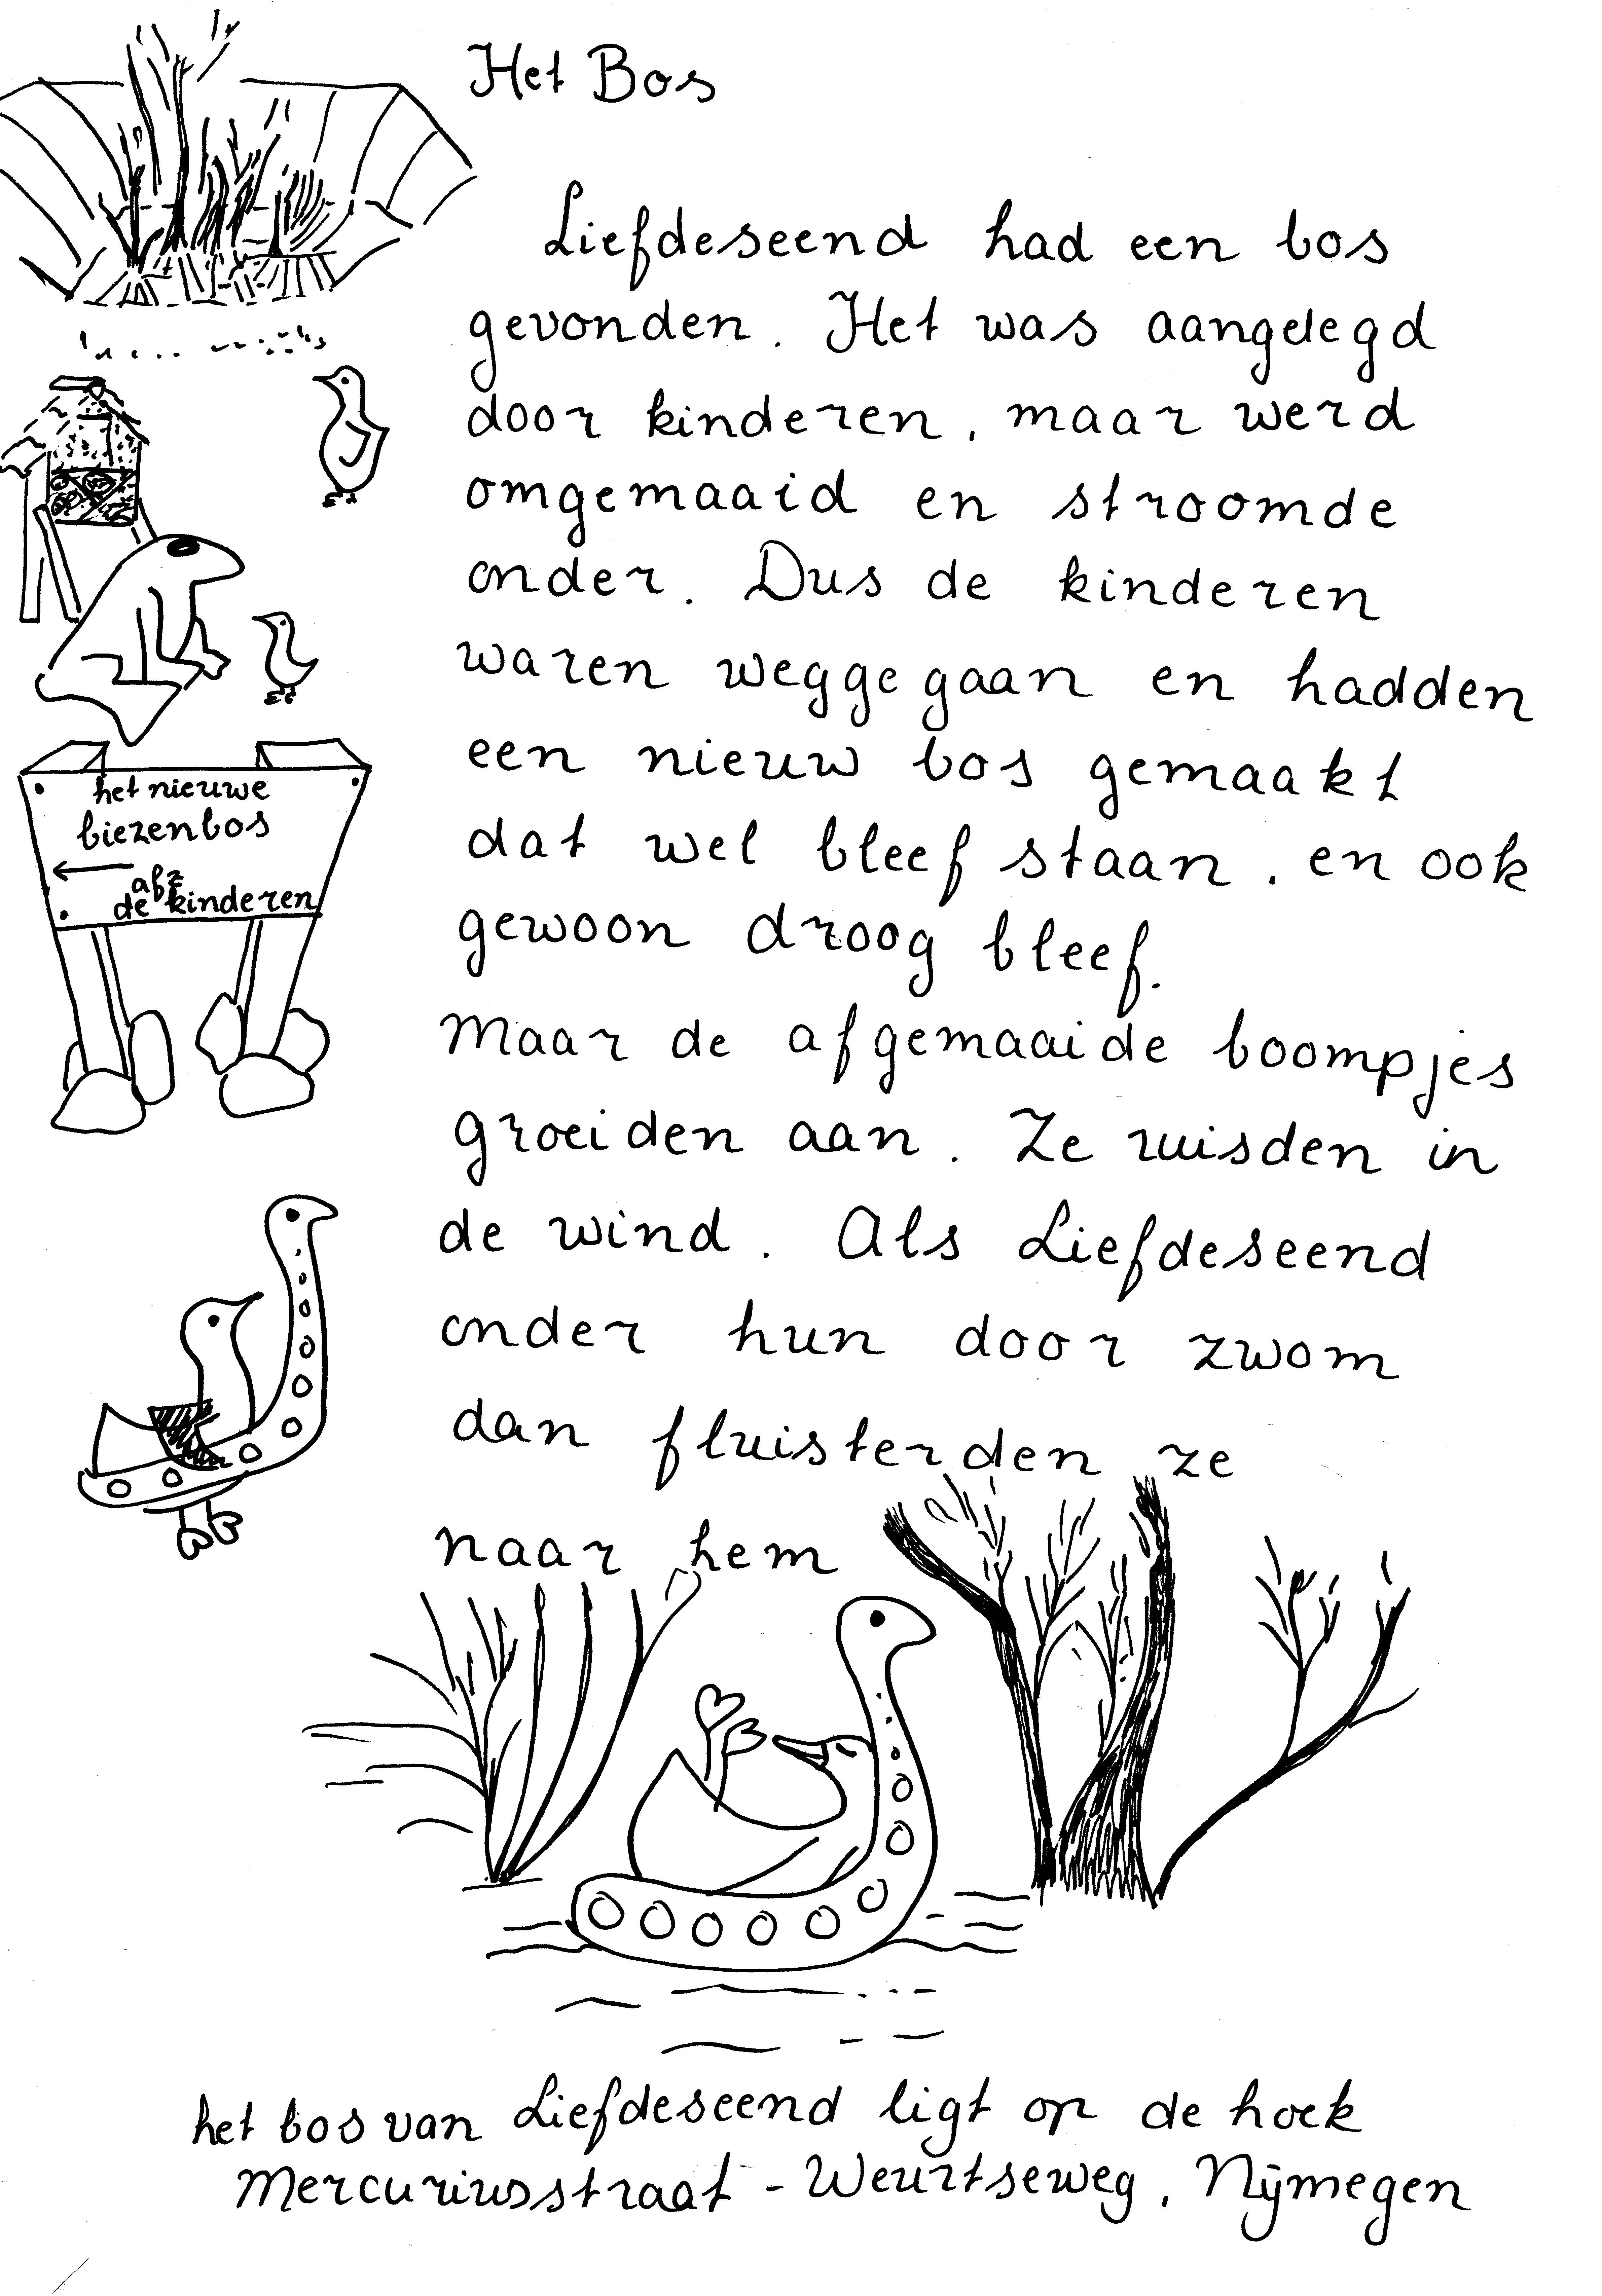 Het Bos
Liefdeseend had een bos
gevonden. Het was aangelegd
door kinderen, maar werd
omgemaaid en stroomde
onder. Dus de kinderen
waren weggegaan en hadden
een nieuw bos gemaakt
dat wel bleef staan, en ook
gewoon droog bleef.
Maar de afgemaaide boompjes
groeiden aan. Ze ruisden in
de wind. Als Liefdeseend
onder hun door zwom
dan fluisterden ze
naar hem
het nieuwe
biezenbos
afz
de kinderen
het bos van Liefdeseend ligt op de hoek
Mercuriusstraat - Weurtseweg, Nijmegen